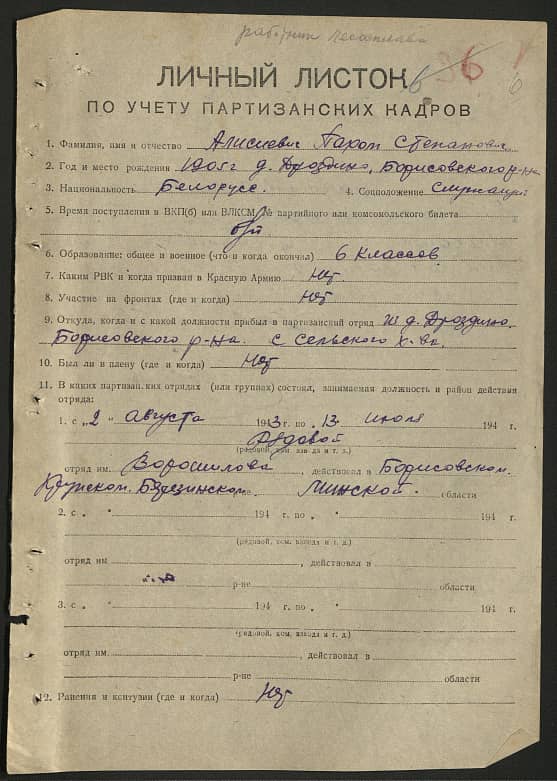 работник
36
ЛИЧНЫЙ ЛИСТОК
ПО УЧЕТУ ПАРТИЗАНСКИХ КАДРОВ
1. Фамилия, имя и отчество Алисиевич Пахом Степанович
2. Год и место рождения 1905 г д. Дроздино, Борисовского р-на
3. Национальность Белорусс. 4. Соцположение Служащий
5. Время поступления в ВКП(б) или ВЛКСМ, № партийного или комсомольского билета
б/п
6. Образование: общее и военное (что и когда окончил) 6 классов
7. Каким РВК и когда призван в Красную Армию Нет
8. Участие на фронтах (где и когда) Нет
9. Откуда, когда и с какой должности прибыл в партизанский отряд из д. Дроздино,
Борисовского р-на с сельского х-ва.
10. Был ли в плену (где и когда) Нет
11. В каких партизанских отрядах (или группах) состоял, занимаемая должность и район действия
отряда:
1. с „2 " августа 1943 г. по „13 июля 194 г.
Рядовой
(рядовой, ком. взвода и т. д.)
отряд им. Ворошилова, действовал в Борисовском.
Крупском. Березинском. Минской. области
2. с „ " 194 г. по „ " 194 г.
(рядовой, ком. взвода и т. д.)
отряд им , действовал в
р-не области
3. с „ " 194 г. по „ " 194 г.
(рядовой, ком. взвода и т. д.)
отряд им. , действовал в
р-не области
12. Ранения и контузии (где и когда) Нет